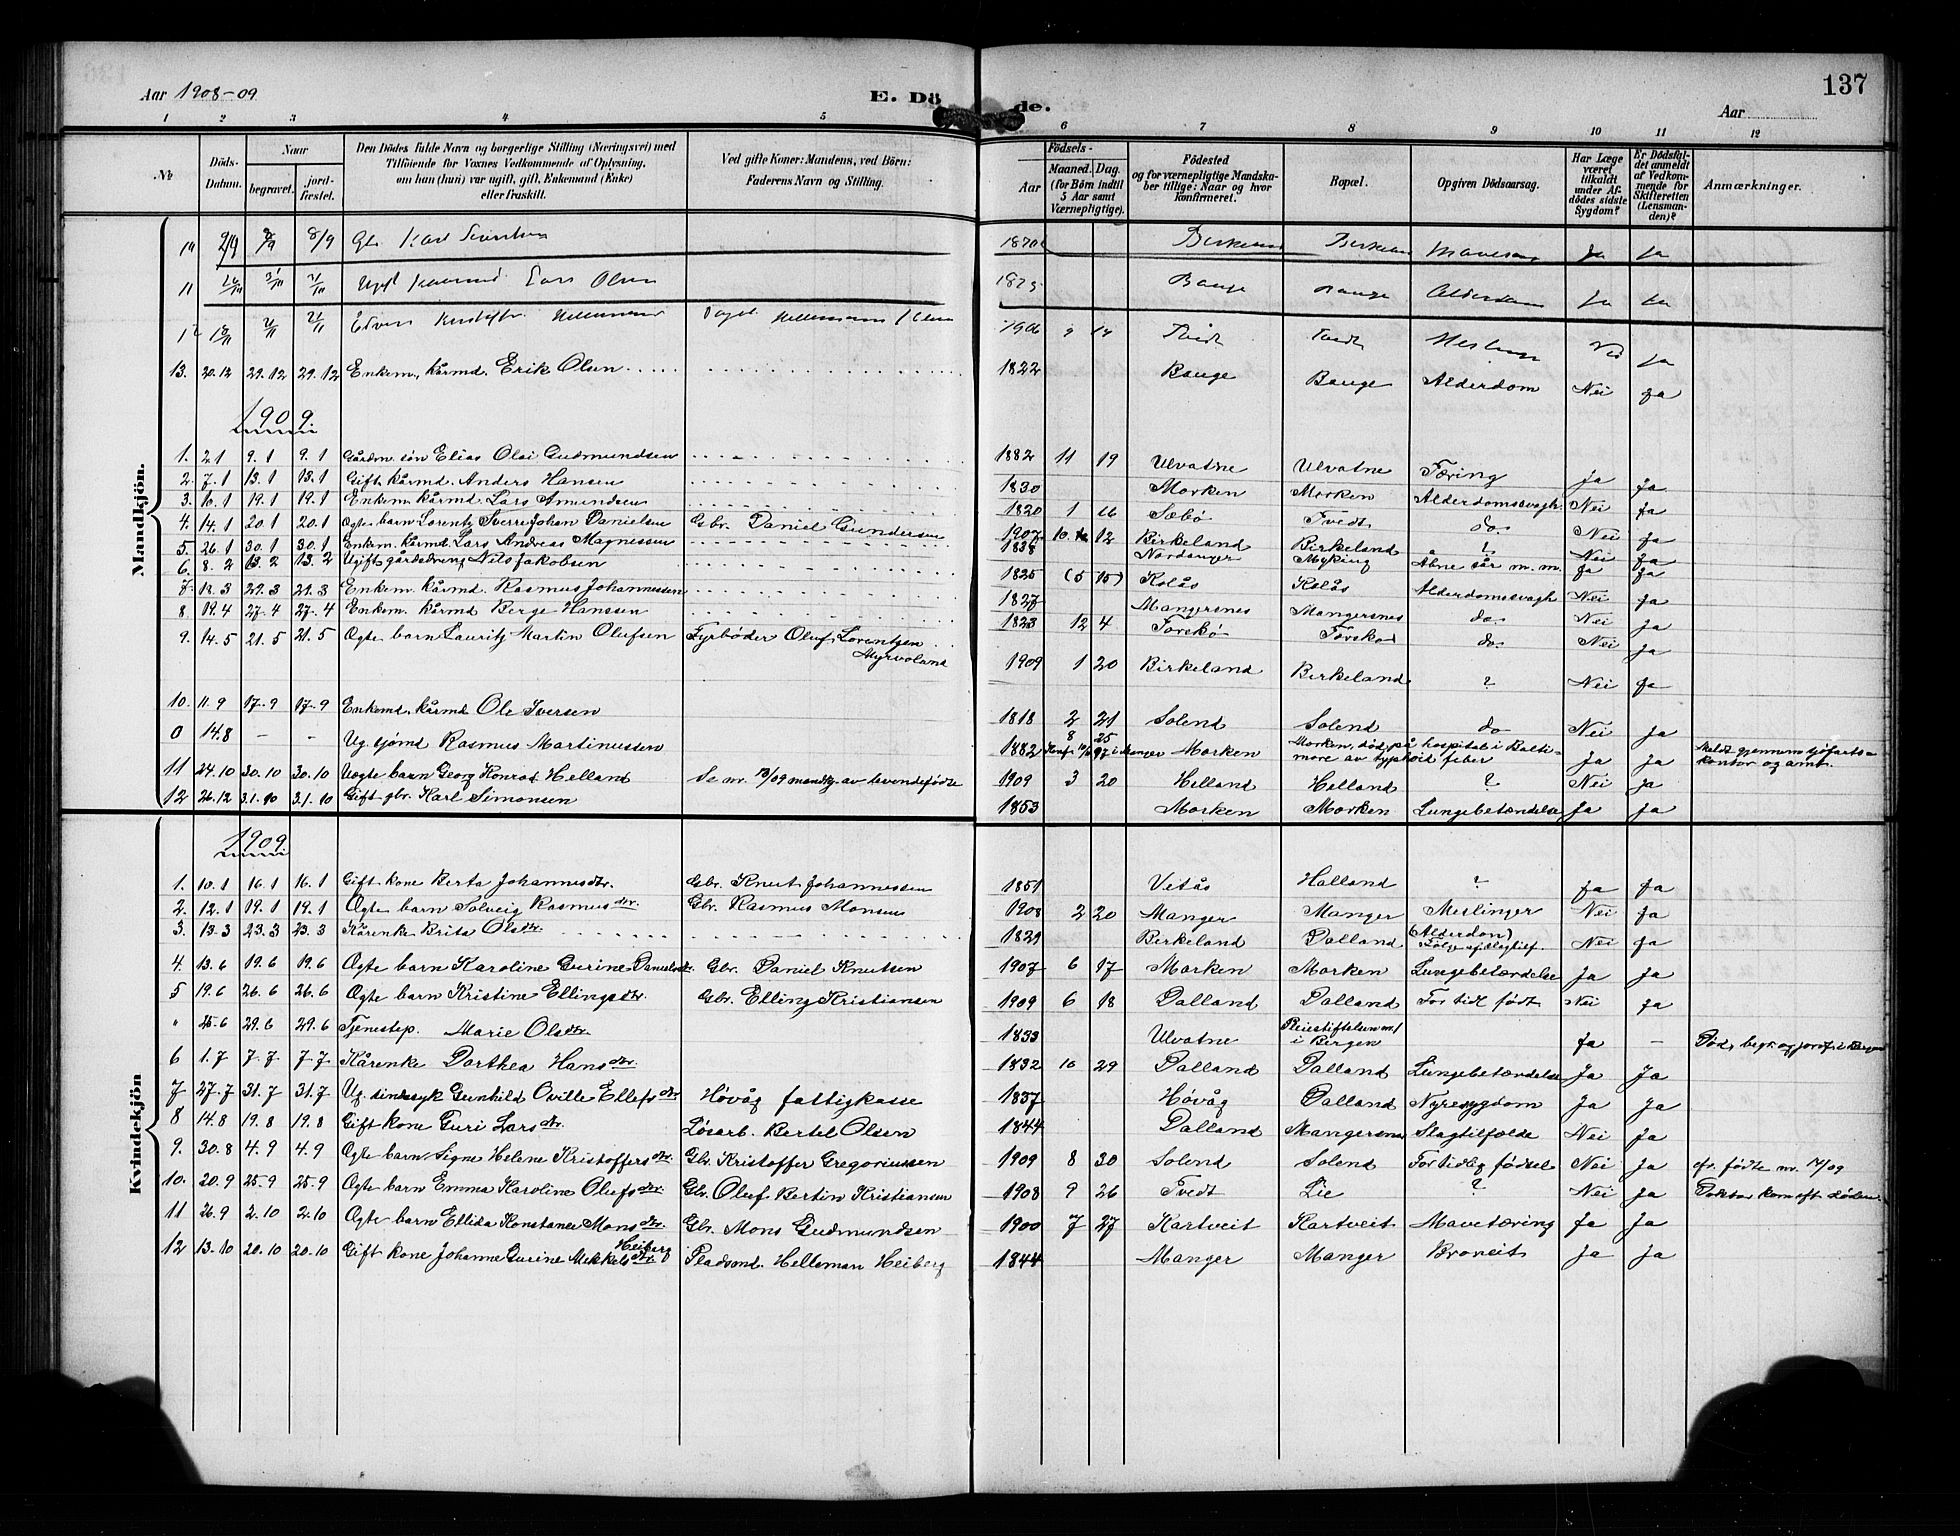 137
Aar 1908-09 E. Döde. Aar
1 2 3 4 5 6 7 8 9 10 11 12
№ Döds-Datum. Naar begravet. jord-fæstet. Den Dödes fulde Navn og borgerlige Stilling (Næringsvei) med Tilföiende for Voxnes Vedkommende af Oplysning, om han (hun) var ugift, gift, Enkemand (Enke) eller fraskilt. Ved gifte Koner: Mandens, ved Börn: Faderens Navn og Stilling. Födsels- Aar Maaned. Dag. (for Börn indtil 5 Aar samt Værnepligtige). Födested og for værnepligtige Mandskaber tillige: Naar og hvor konfirmeret. Bopæl. Opgiven Dödsaarsag. Har Læge været tilkaldt under Afdödes sidste Sygdom? Er Dödsfaldet anmeldt af Vedkommende for Skifteretten (Lensmanden)? Anmærkninger.
Mandkjön.
10 2/9 8/9 8/9 Gbr Karl 1870 Ja Ja
11 Ugift Lars Olsen 1825 Bauge Bauge Alderdom Ja Ja
12 1906 9 14 Tvedt Tvedt Nei Ja
13. 20.12 29.12 29.12 Enkem. kårmd. Erik Olsen 1822 Bauge Bauge Alderdom Nei Ja
1909.
1. 2.1 9.1 9.1 Gårdm. søn Elias Olai Gudmundsen 1882 11 19 Ulvatne Ulvatne Tæring Ja Ja
2. 7.1 13.1 13.1 Gift kårmd. Anders Hansen 1830 Morken Morken Alderdomssvagh. Nei Ja
3. 10.1 19.1 19.1 Enkem. kårmd. Lars Amundsen 1820 1 16 Sæbø Tvedt do Nei Ja
4. 14.1 20.1 20.1 Ogte barn Lorentz Sverre Johan Danielsen Gbr. Daniel Gundersen 1907 10 12 Birkeland Birkeland ? Nei Ja
5. 26.1 30.1 30.1 Enkem. kårmd Lars Andreas Magnessen 1838 Nordanger Myking Åbne sår m.m. Ja Ja
6. 8.2 13.2 13.2 Ugift gårdsdreng Nils Jakobsen 1825 (5 15) Kolås Kolås Alderdomssvagh Nei Ja
7. 18.3 29.3 29.3 Enkem. kårmd. Rasmus Johannessen 1827 Mangersnes Mangersnes do. Nei Ja
8. 19.4 27.4 27.4 Enkem. kårmd Berge Hansen 1823 12 4 Toskø Toska do Nei Ja
9. 14.5 21.5 21.5 Ogte barn Lauritz Martin Olufsen Fyrbøder Oluf Lorentzen Myrvoland 1909 1 20 Birkeland Birkeland ? Nei Ja
10. 11.9 17.9 17.9 Enkemd. kårmd Ole Iversen 1818 2 21 Solend Solend do Nei Ja
0 14.8 - - Ug. sjømd Rasmus Martinussen 1882 8 25 Konf. i Manger Morken Morken, død på hospital i Baltimore av typhoid feber Ja Ja Meldt gjennem sjöfartskontor og amt.
11 24.10 30.10 30.10 Uægte barn Georg Konrad Helland Se nr. 13/09 mandkj. av levendefødte 1909 3 20 Helland Helland ? Nei Ja
12 26.12 3.1.10 3.1.10 Gift gbr. Karl Simonsen 1853 Morken Morken Lungebetændelse Ja Ja
Kvindekjön
1909.
1. 10.1 16.1 16.1 Gift kone Berta Johannesdtr. Gbr. Knut Johannessen 1851 Vetås Halland ? Ja Ja
2. 12.1 19.1 19.1 Ogte barn Solveig Rasmusdtr. Gbr. Rasmus Monsen 1908 2 20 Manger Manger Meslinger Nei Ja
3. 13.3 23.3 23.3 Kårenke Brita Olsdtr. 1829 Birkeland Dalland (Alderdom) Følge af slagtilf. Nei Ja
4. 13.6 19.6 19.6 Ogte barn Karoline Gurine Danielsdtr. Gbr. Daniel Knutsen 1907 6 17 Morken Morken Lungebetændelse Ja Ja
5 19.6 26.6 26.6 Ogte barn Kristine Ellingsdtr. Gbr. Elling Kristiansen 1909 6 18 Dalland Dalland For tidl. født Nei Ja
" 25.6 29.6 29.6 Tjenestep. Marie Olsdtr. 1833 Ulvatne Pleiestiftelsen nr. 1 i Bergen Ja - Død, begr. og jordf. i Bergen
6 1.7 7.7 7.7 Kårenke Dorthea Hansdtr. 1832 10 29 Dalland Dalland Lungebetændelse Ja Ja
7 27.7 31.7 31.7 Ug. sindssyk Gunhild Oville Ellefsdtr. Høvåg fattigkasse 1837 Høvåg Dalland Nyresygdom Ja Ja
8 14.8 19.8 19.8 Gift kone Guri Larsdtr. Løsarb. Bertel Olsen 1844 Dalland Mangersnes Slagtilfælde Nei Ja
9. 30.8 4.9 4.9 Ogte barn Signe Helene Kristoffersdtr. Gbr. Kristoffer Gregoriussen 1909 8 30 Solend Solend For tidlig fødsel Nei Ja cfr. fødte nr. 14/09
10. 20.9 25.9 25.9 Ogte barn Emma Karoline Olufsdtr. Gbr. Oluf Bertin Kristiansen 1908 9 26 Tvedt Lie ? Nei Ja Doktor kom eft. døden.
11 26.9 2.10 2.10 Ogte barn Ellida Konstanse Monsdtr. Gbr. Mons Gudmundsen 1900 7 27 Kartveit Kartveit Mavetæring Ja Ja
12 13.10 20.10 20.10 Gift kone Johanne Gurine Mekkelsdtr. Heiberg Pladsmd. Helleman Heiberg 1844 Manger Manger Ja Ja